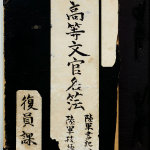 陸軍書記
高等文官名簿
陸軍技
復員課